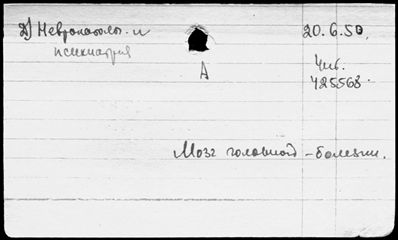 2) Невропатол. и
психиатрия
20.6.50.
А
Чит.
425563.
Мозг головной – болезни.